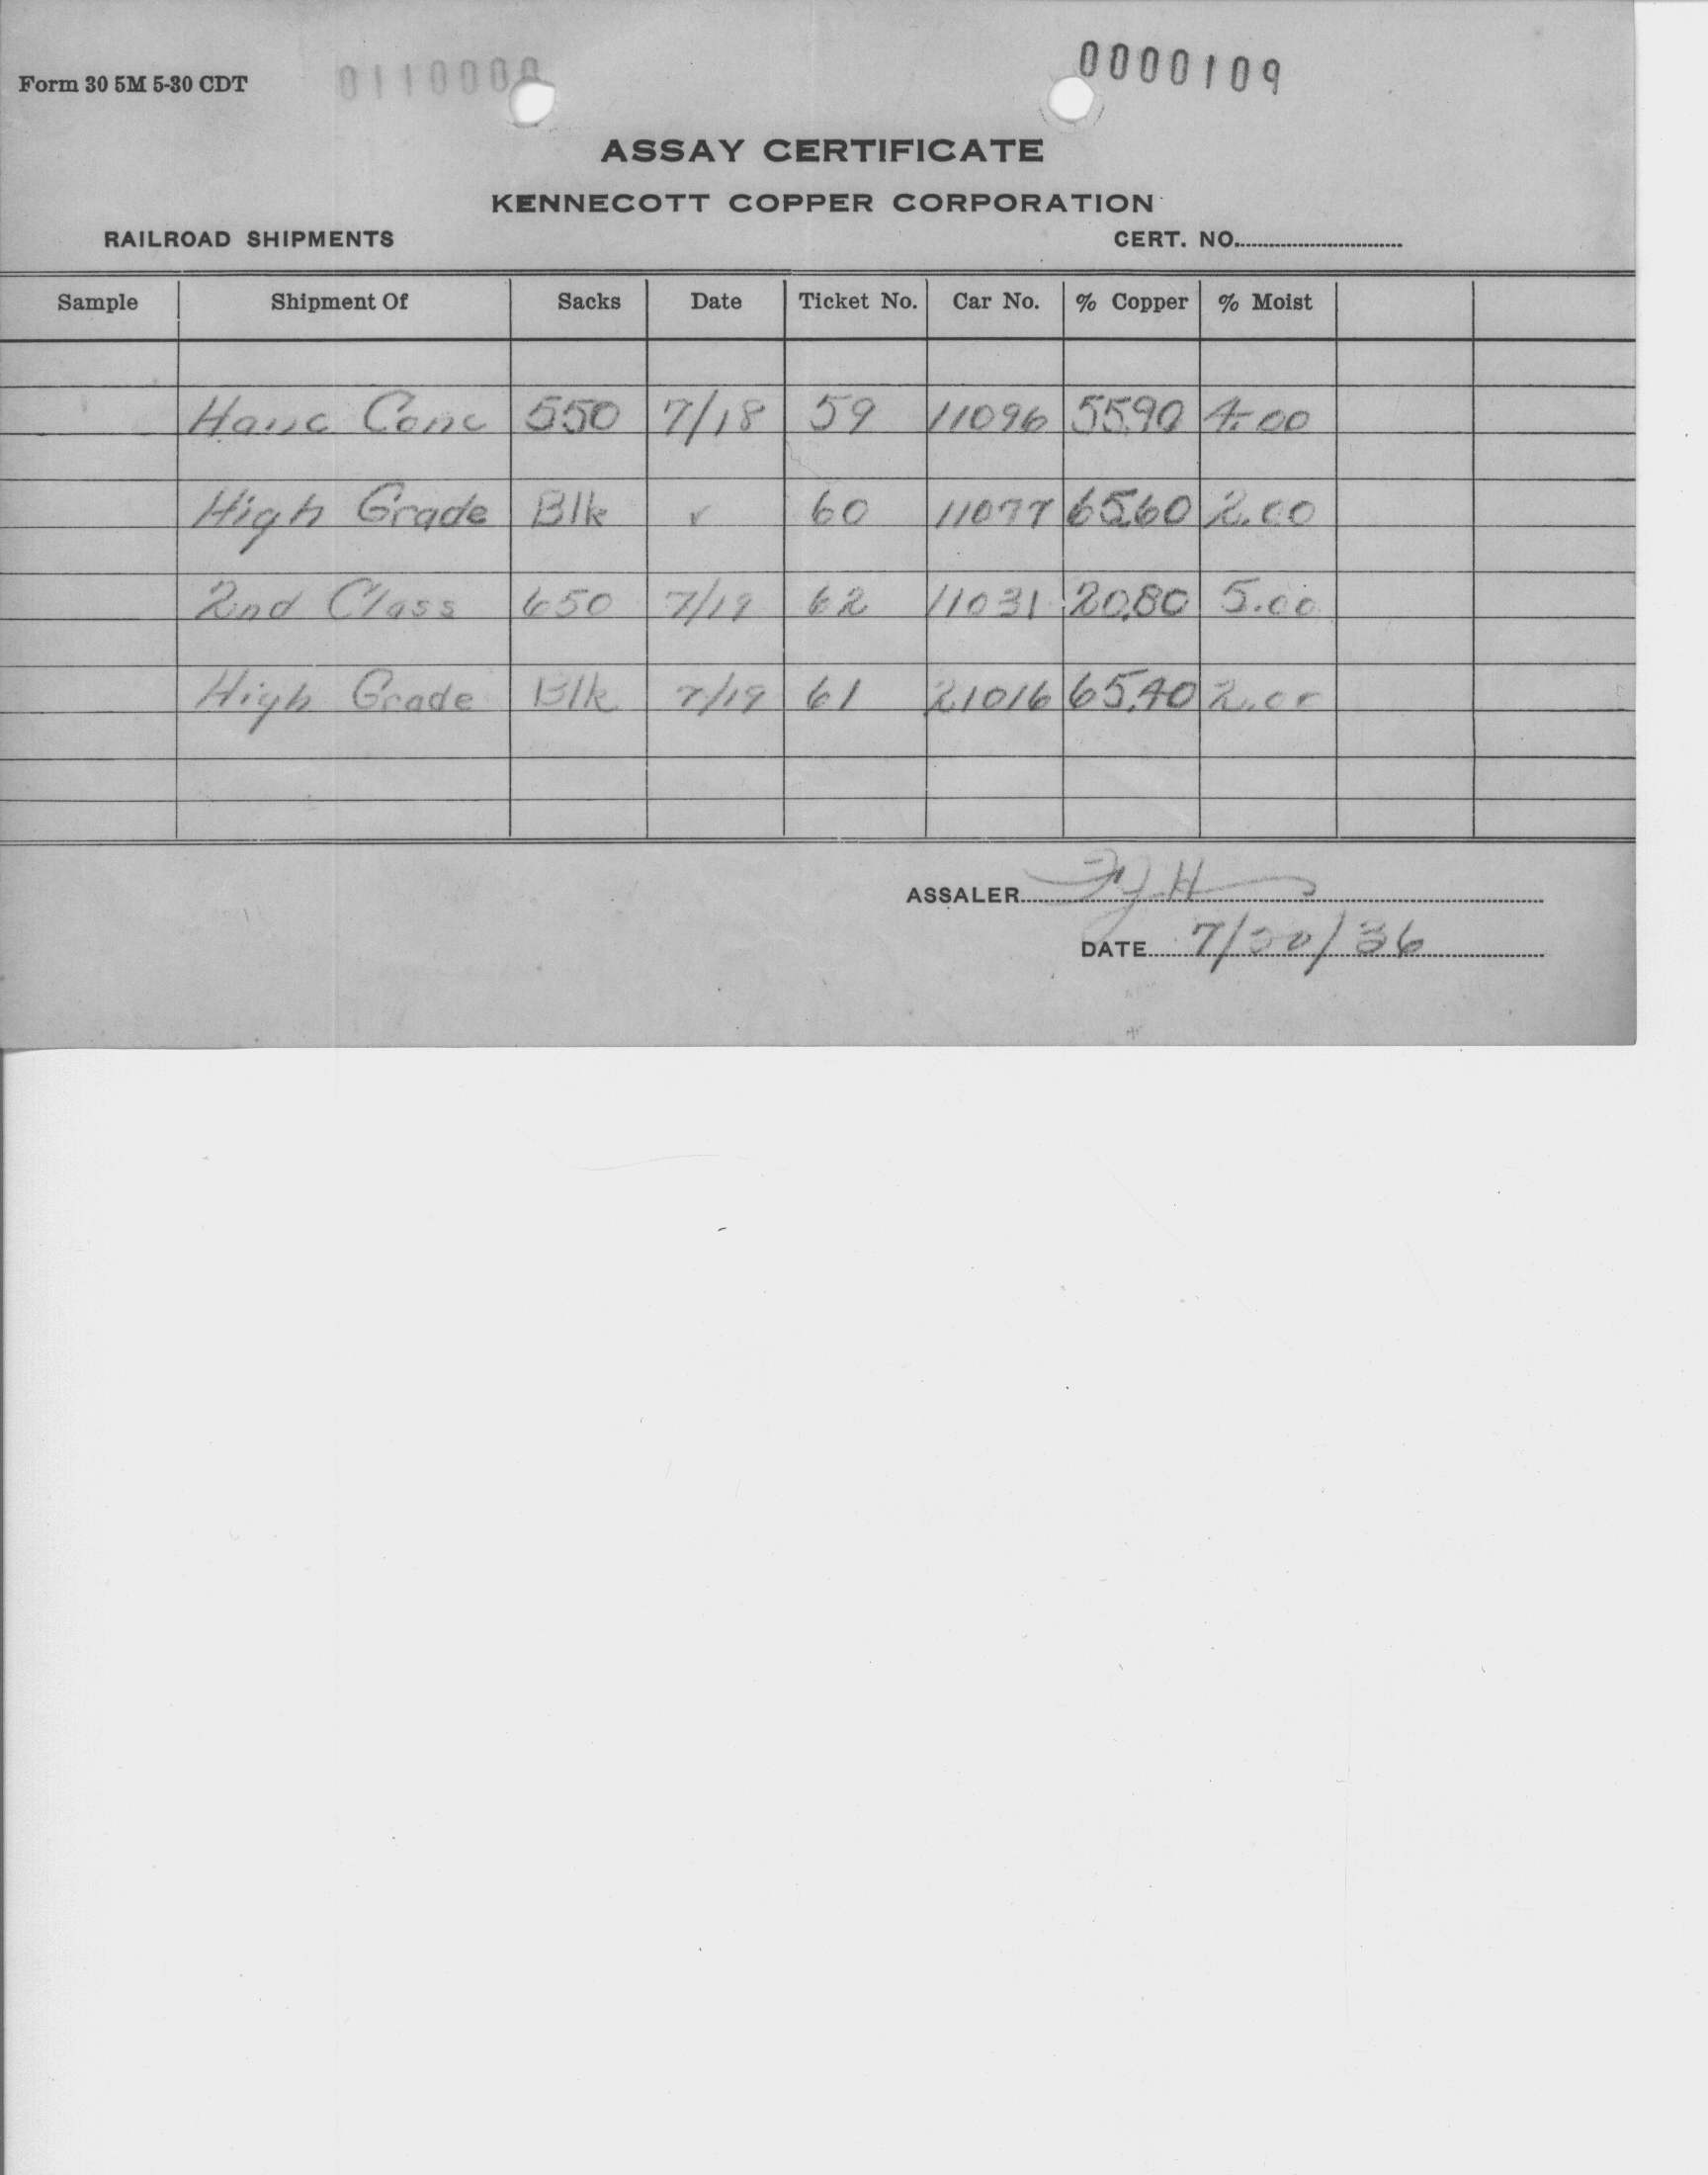 Form 30 5M 5-30 CDT
0000109
ASSAY CERTIFICATE
KENNECOTT COPPER CORPORATION
RAILROAD SHIPMENTS CERT. NO.
Sample Shipment Of Sacks Date Ticket No. Car No. % Copper % Moist
Conc 550 7/18 59 11096 55.90 4.00
High Grade Blk ✓ 60 11077 65.60 2.00
2nd Class 650 7/19 62 11031 20.80 5.00
High Grade Blk 7/19 61 21016 65.40 2.00
ASSALER
DATE 7/20/36